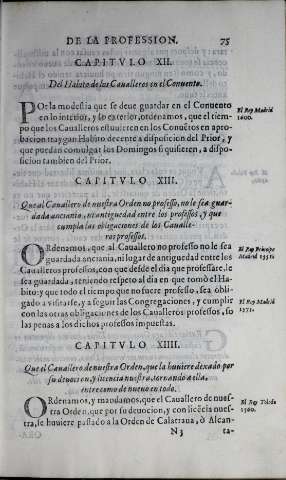 DE LA PROFESSION. 75
CAPITVLO XII.
Del Habito de los Caualleros en el Conuento.
POr la modestia que se deue guardar en el Conuento
en lo interior, y lo exterior, ordenamos, que el tiem-
po que los Caualleros estuuieren en los Conuẽtos en apro-
bacion traygan Habito decente a disposicion del Prior, y
que puedan comulgar los Domingos si quisieren, a dispo-
sicion tambien del Prior.
El Rey Madrid
1600.
CAPITVLO XIII.
Que al Cauallero de nuestra Orden no professo, no le sea guar-
dada anciania, ni antiguedad entre los professos, y que
cumpla las obligaciones de los Caualle-
ros professos.
ORdenamos, que al Cauallero no professo no le sea
guardada anciania, ni lugar de antiguedad entre los
Caualleros professos, con que desde el dia que professare, le
sea guardada, teniendo respeto al dia en que tomò el Ha-
bito; y que todo el tiempo que no fuere professo, sea obli-
gado a visitarse, y a seguir las Congregaciones, y cumplir
con las otras obligaciones de los Caualleros professos, so
las penas a los dichos professos impuestas.
El Rey Principe
Madrid 1551.
El Rey Madrid
1573.
CAPITVLO XIIII.
Que el Cauallero de nuestra Orden, que la huuiere dexado por
su deuocion, y licencia nuestra, tornando a ella,
entre como de nueuo en todo.
ORdenamos, y mandamos, que el Cauallero de nues-
tra Orden, que por su deuocion, y con licẽcia nues-
tra, se huuiere passado a la Orden de Calatraua, ò Alcan-
El Rey Toledo
1560.
N 3 ta-